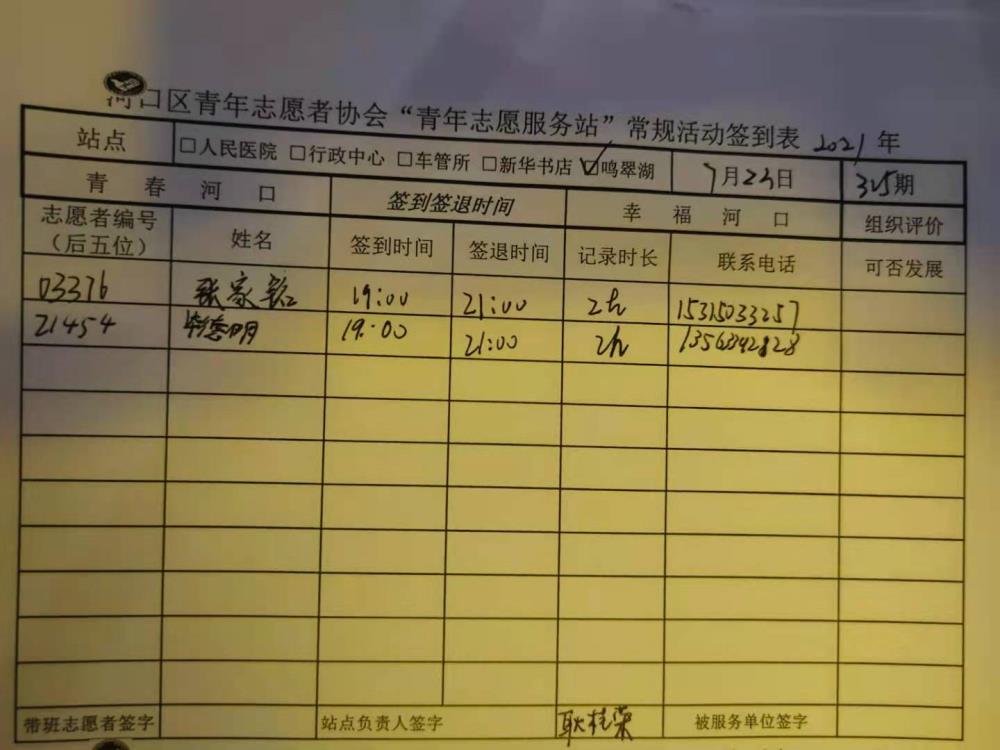 河口区青年志愿者协会“青年志愿服务站”常规活动签到表 2021年
站点 □人民医院 □行政中心 □车管所 □新华书店 ☑鸣翠湖 7月23日 315期
青春河口 签到签退时间 幸福河口 组织评价
志愿者编号（后五位） 姓名 签到时间 签退时间 记录时长 联系电话 可否发展
03376 张家铭 19:00 21:00 2h 15315033257
21454 19:00 21:00 2h 13563492828
带班志愿者签字 站点负责人签字 耿桂荣 被服务单位签字